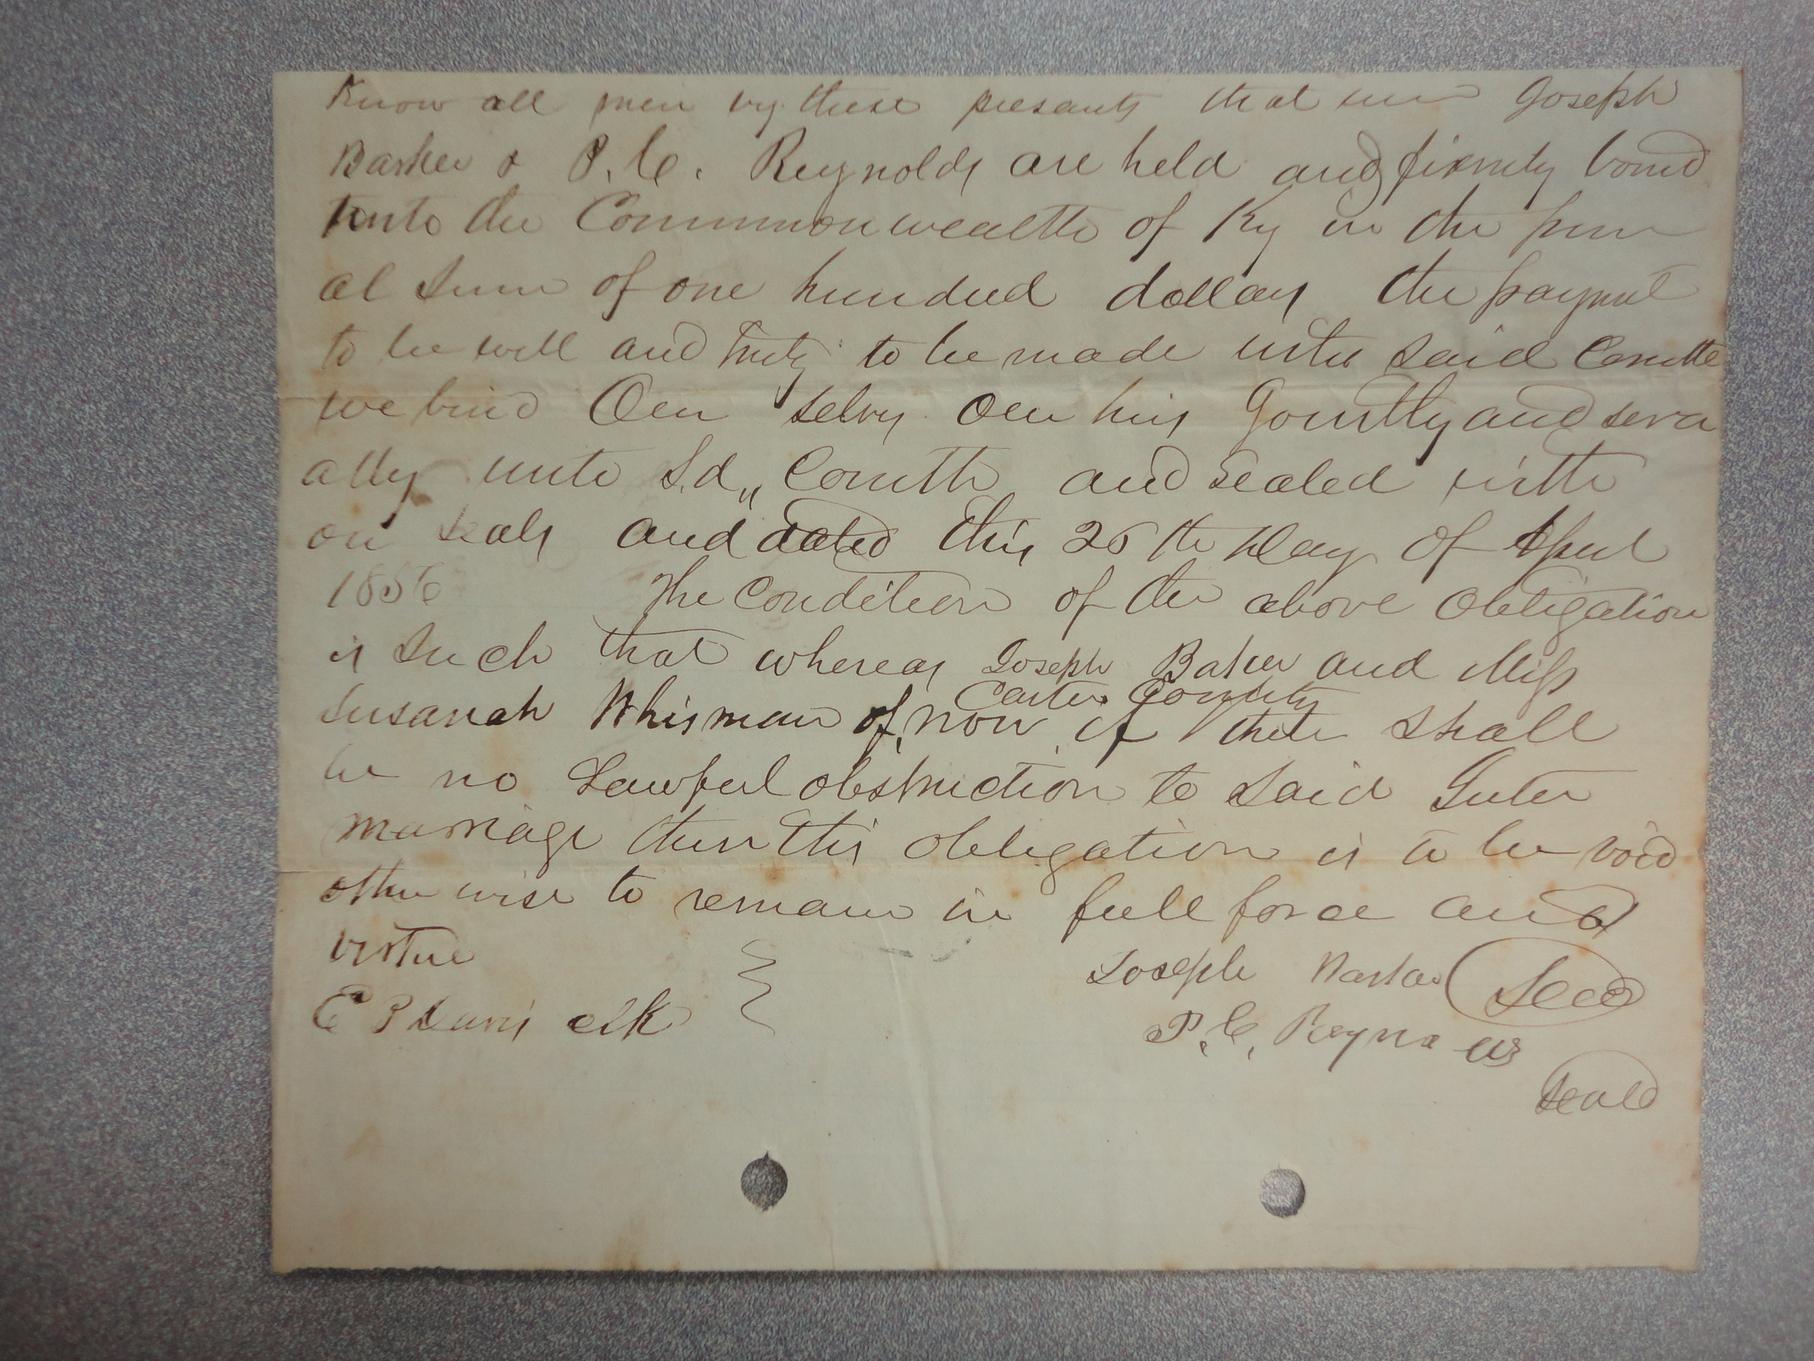 Know all men by these presants that we Joseph
Barker & P. C. Reynolds are held and firmly bound
unto the Commonwealth of Ky in the pen
al Sum of one hundred dollars the paymt
to be well and truly to be made unto said Comtth
we bind Our selvs our hirs Jointly and sever
ally unto S.d,, Comtth and sealed with
our Seals and dated this 26th Day of April
1856 The Condition of the above obligation
is Such that whereas Joseph Baker and Miss
Susanah Whisman of, now if there shall
Carter County
be no Lawful obstruction to said Inter
marriage then this obligation is to be void
otherwise to remain in full force and
virtue
Joseph Barker Seal
E P Davis clk
P. C. Reynolds
Seal